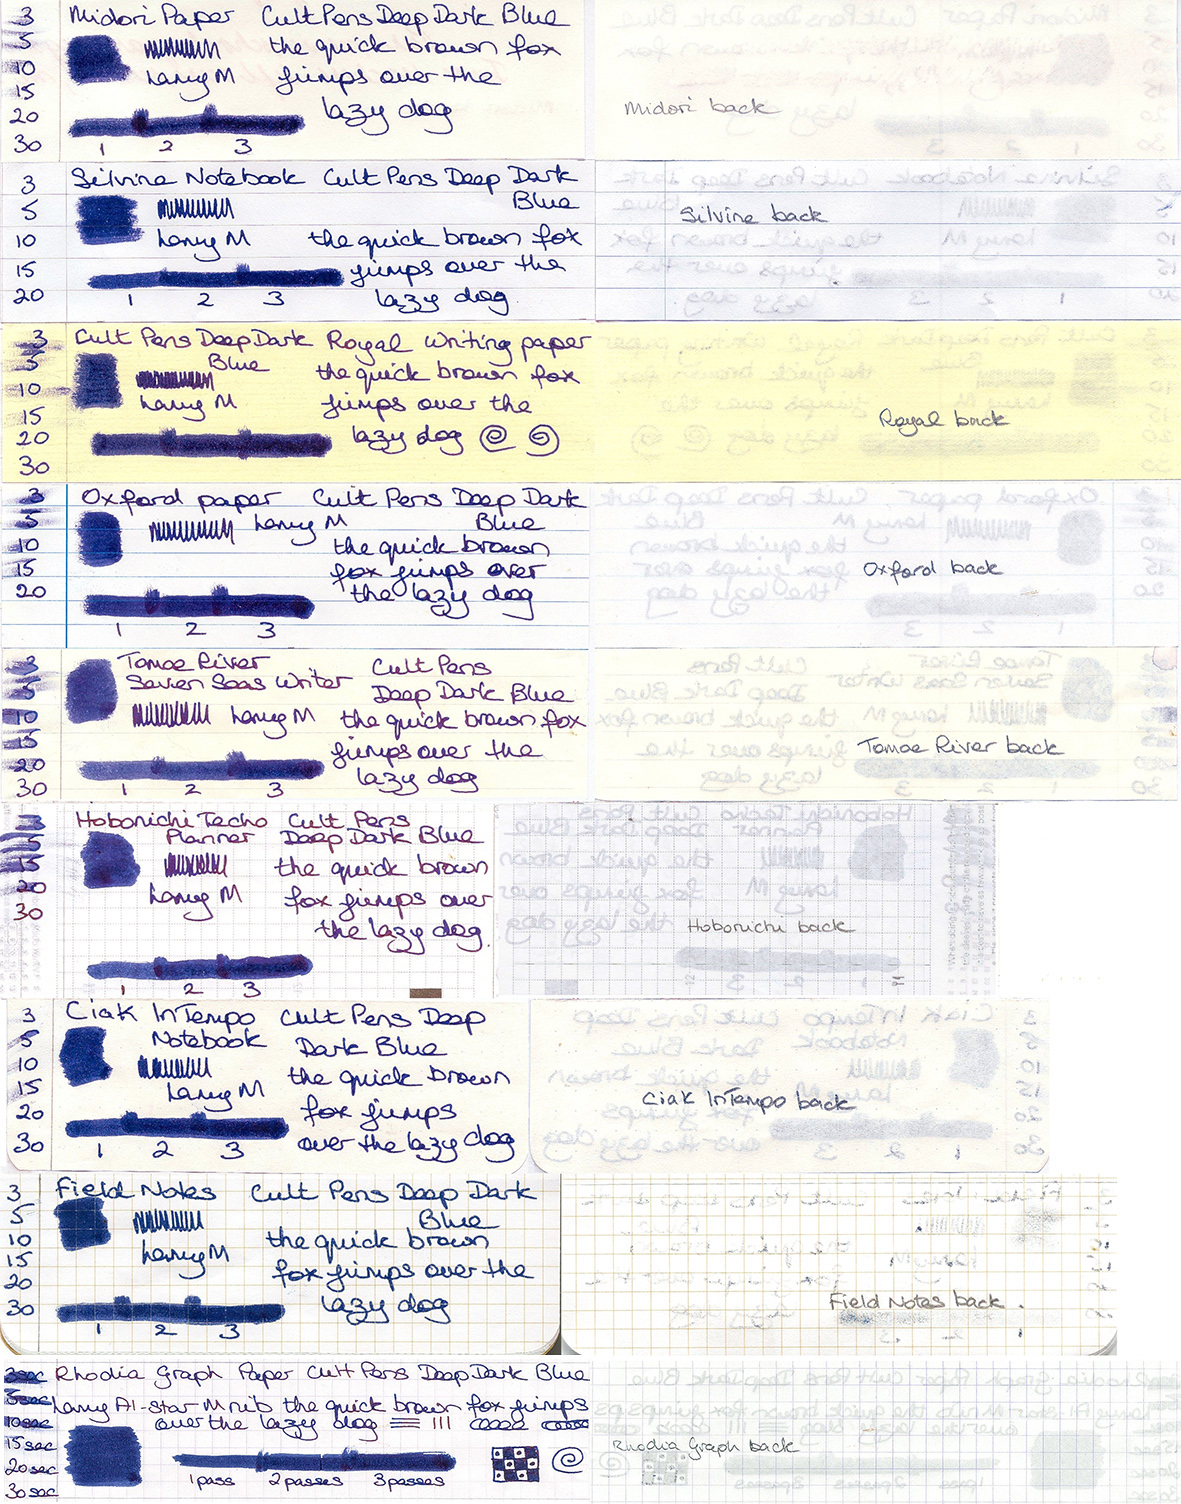 3 Midori Paper Cult Pens Deep Dark Blue
5 the quick brown fox
10 Lamy M jumps over the
15
20 lazy dog
30 1 2 3
Midori back
3 Silvine Notebook Cult Pens Deep Dark
5 Blue
10 Lamy M the quick brown fox
15 jumps over the
20 1 2 3 lazy dog
Silvine back
3 Cult Pens Deep Dark Royal Writing paper
5 Blue the quick brown fox
10 Lamy M jumps over the
15
20 lazy dog
30
Royal back
3 Oxford paper Cult Pens Deep Dark
5 Lamy M Blue
10 the quick brown
15 fox jumps over
20 the lazy dog
1 2 3
Oxford back
3 Tomoe River Cult Pens
5 Seven Seas Writer Deep Dark Blue
10 Lamy M the quick brown fox
15 jumps over the
20 lazy dog
30 1 2 3
Tomoe River back
Hobonichi Techo Cult Pens
Planner Deep Dark Blue
15 the quick brown
20 Lamy M fox jumps over
30 the lazy dog.
1 2 3
Hobonichi back
3 Ciak InTempo Cult Pens Deep
5 Notebook Dark Blue
10 the quick brown
15 Lamy M
20 fox jumps
30 1 2 3 over the lazy dog
Ciak InTempo back
3 Field Notes Cult Pens Deep Dark
5 Blue
10 the quick brown
15 Lamy M
20 fox jumps over the
30 lazy dog
1 2 3
Field Notes back.
3sec Rhodia Graph Paper Cult Pens Deep Dark Blue
5sec Lamy Al-star M nib the quick brown fox jumps
10sec over the lazy dog
15sec
20sec 1 pass 2 passes 3 passes
30sec
Rhodia Graph back